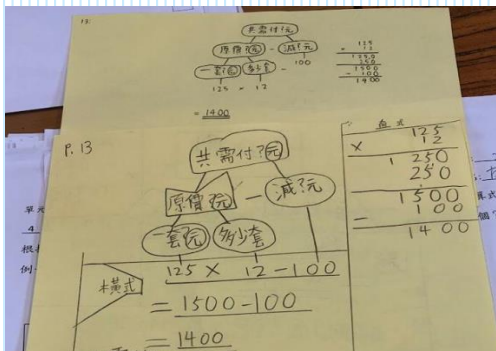 共需付?元
原價?元 - 減?元
一套?元 多少套 100
125 × 12
= 1400
125
× 12
1250
250
1500
- 100
1400
P.13
共需付?元
原價?元 - 減?元
一套?元 多少套
125 × 12 - 100
木橫式
= 1500 - 100
= 1400
直式
125
× 12
1 250
250
1500
- 100
1400
單元
4
根
例